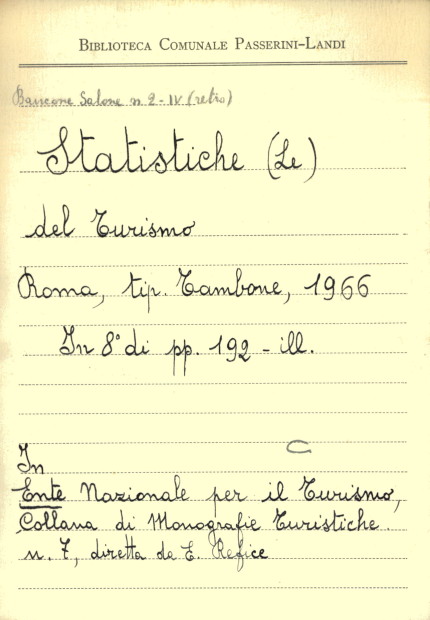 BIBLIOTECA COMUNALE PASSERINI-LANDI
Bancone Salone n 2 - IV (retro)
Statistiche (Le)
del Turismo
Roma, tip. Tambone, 1966
In 8° di pp. 192 - ill.
In
Ente Nazionale per il Turismo,
Collana di Monografie Turistiche.
n. 7, diretta da E. Refice